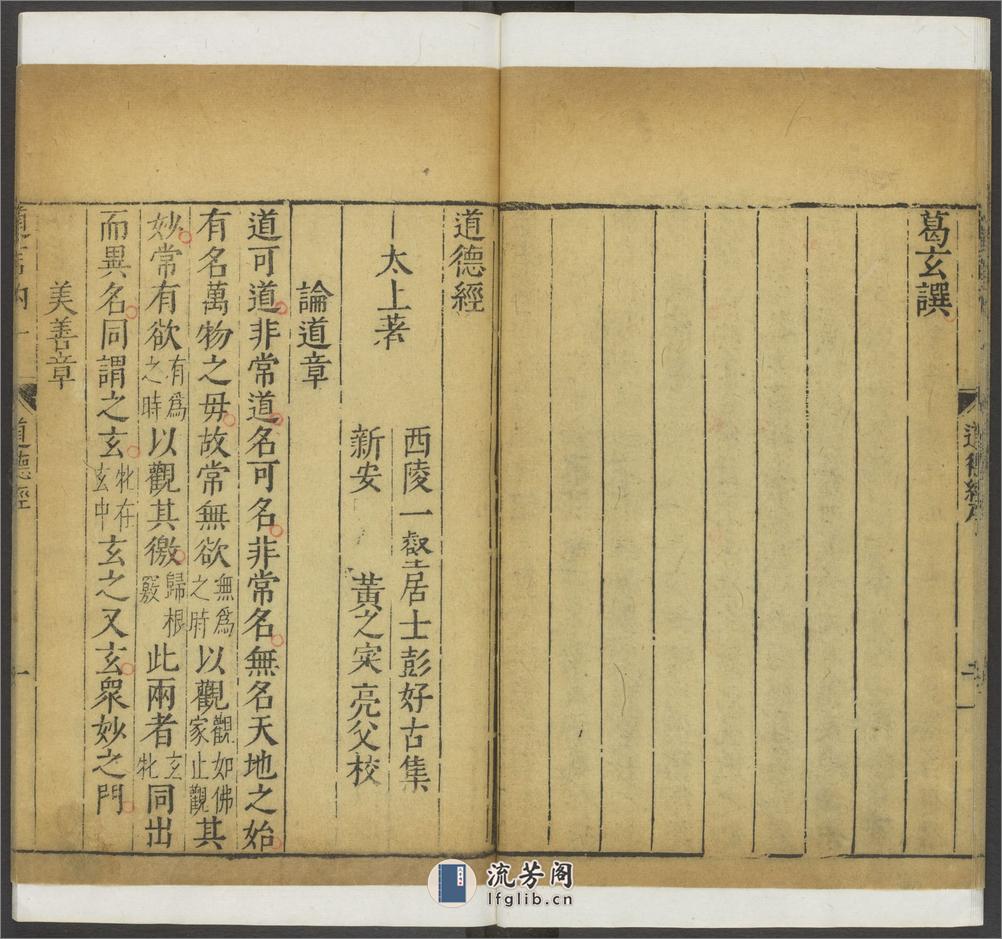 葛玄譔
道德經序
二
道德經
太上著
西陵一壑居士彭好古集
新安 黃之寀亮父校
論道章
道可道非常道名可名非常名無名天地之始
有名萬物之毋故常無欲無爲之時以觀觀如佛家止觀其
妙常有欲有爲之時以觀其徼歸根竅此兩者玄牝同出
而異名同謂之玄牝在玄中玄之又玄衆妙之門
美善章
道言內一 道德經 一
流芳阁
lfglib.cn